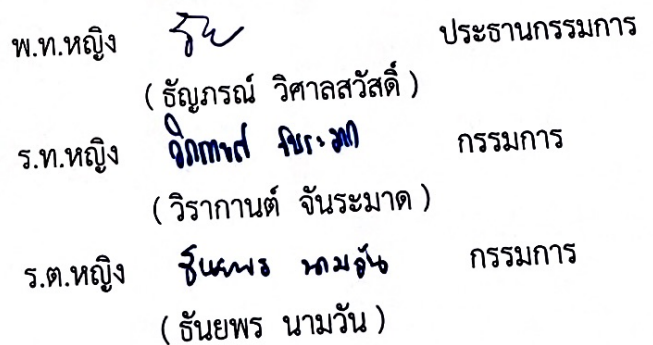 พ.ท.หญิง ธัญ ประธานกรรมการ
( ธัญภรณ์ วิศาลสวัสดิ์ )
ร.ท.หญิง วิรากานต์ จันระมาด กรรมการ
( วิรากานต์ จันระมาด )
ร.ต.หญิง ธันยพร นามวัน กรรมการ
( ธันยพร นามวัน )